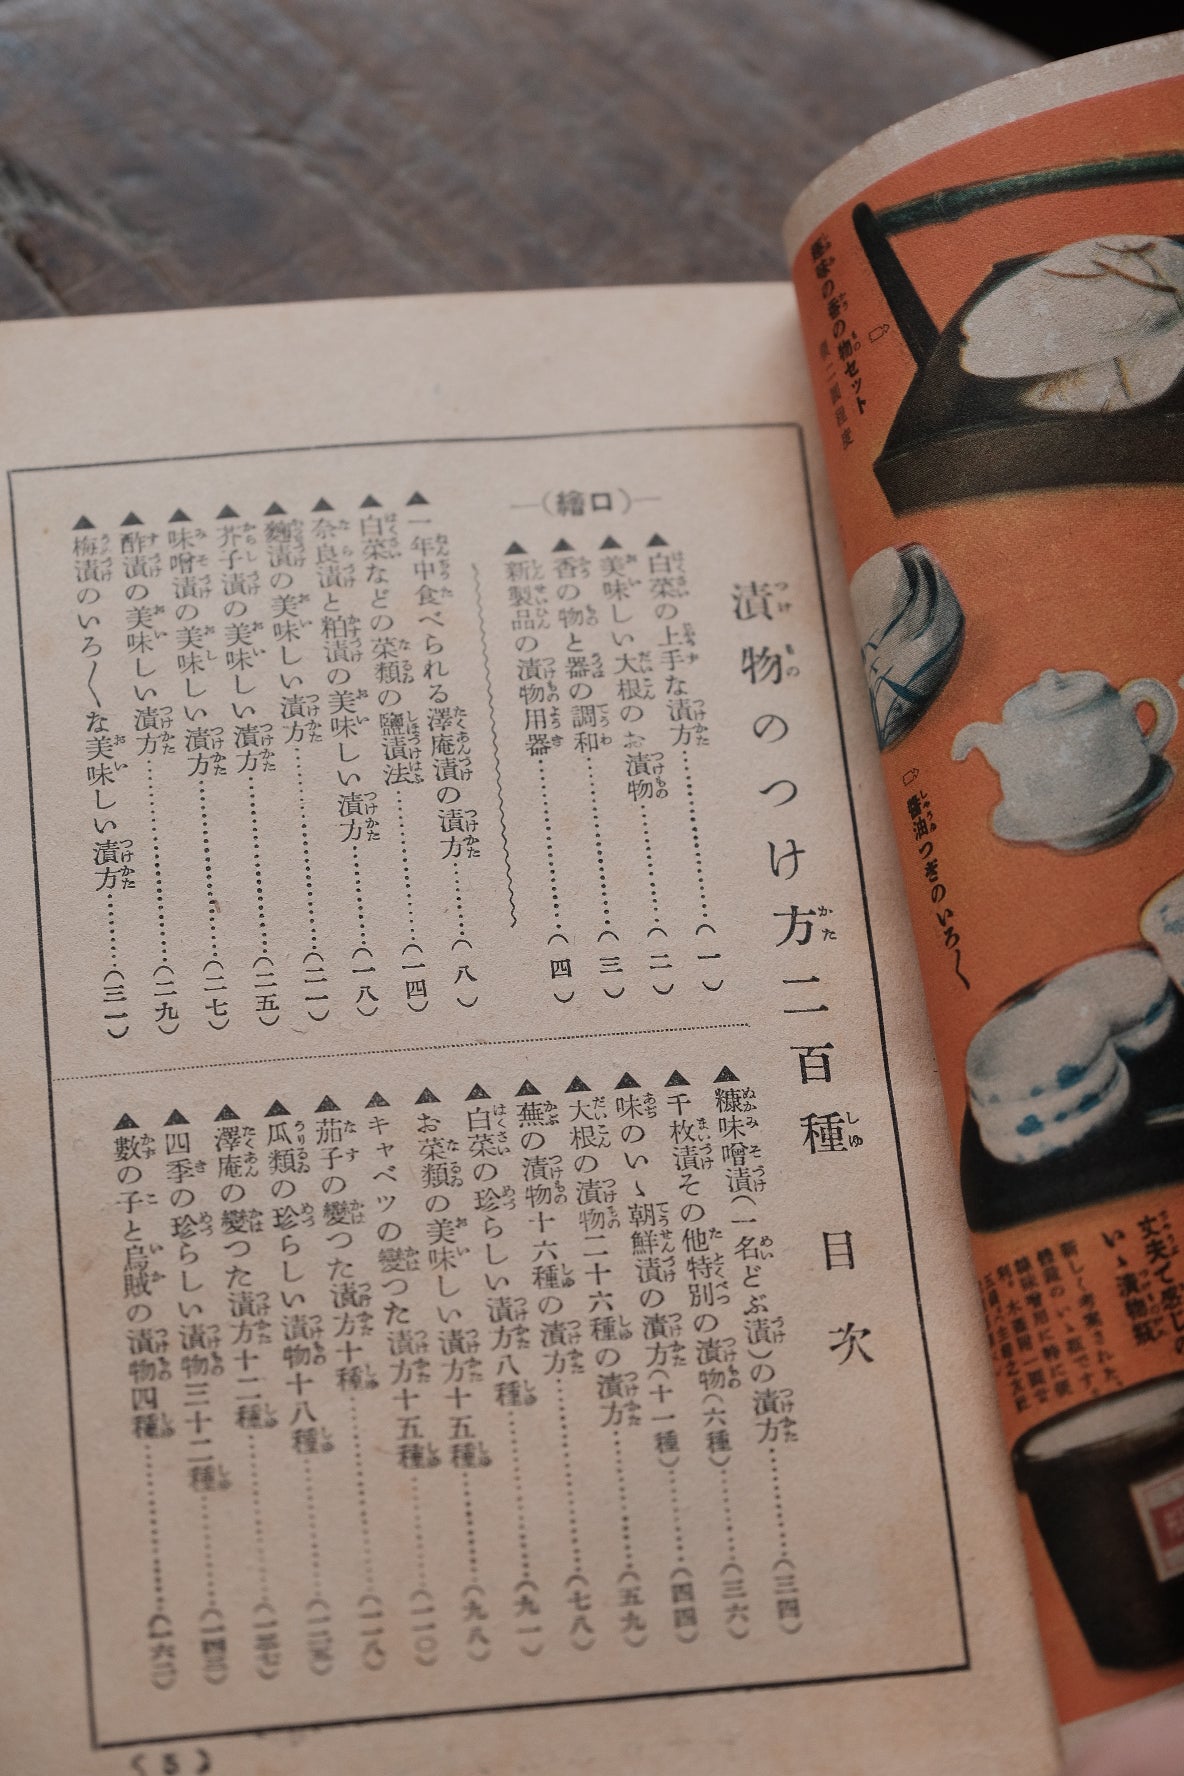 漬物のつけ方二百種 目次
―(繪口)―
▲白菜の上手な漬方…………(一)
▲美味しい大根のお漬物…………(二)
▲香の物と器の調和…………(三)
▲新製品の漬物用器…………(四)
▲一年中食べられる澤庵漬の漬方…………(八)
▲白菜などの菜類の鹽漬法…………(一四)
▲奈良漬と粕漬の美味しい漬方…………(一八)
▲麴漬の美味しい漬方…………(二一)
▲芥子漬の美味しい漬方…………(二五)
▲味噌漬の美味しい漬方…………(二七)
▲酢漬の美味しい漬方…………(二九)
▲梅漬のいろ〱な美味しい漬方…………(三一)
▲糠味噌漬(一名どぶ漬)の漬方…………(三四)
▲千枚漬その他特別の漬物(六種)…………(三六)
▲味のいゝ朝鮮漬の漬方(十一種)…………(四四)
▲大根の漬物二十六種の漬方…………(五九)
▲蕪の漬物十六種の漬方…………(七八)
▲白菜の珍らしい漬方八種…………(九一)
▲お菜類の美味しい漬方十五種…………(九八)
▲キャベツの變つた漬方十五種…………(一一〇)
▲茄子の變つた漬方十種…………(一一八)
▲瓜類の珍らしい漬物十八種…………
▲澤庵の變つた漬方十二種…………
▲四季の珍らしい漬物三十二種…………
▲數の子と烏賊の漬物四種…………
味の香の物セット
醬油つぎのいろ〱
丈夫で感じの
いゝ漬物瓶
新しく考案された、